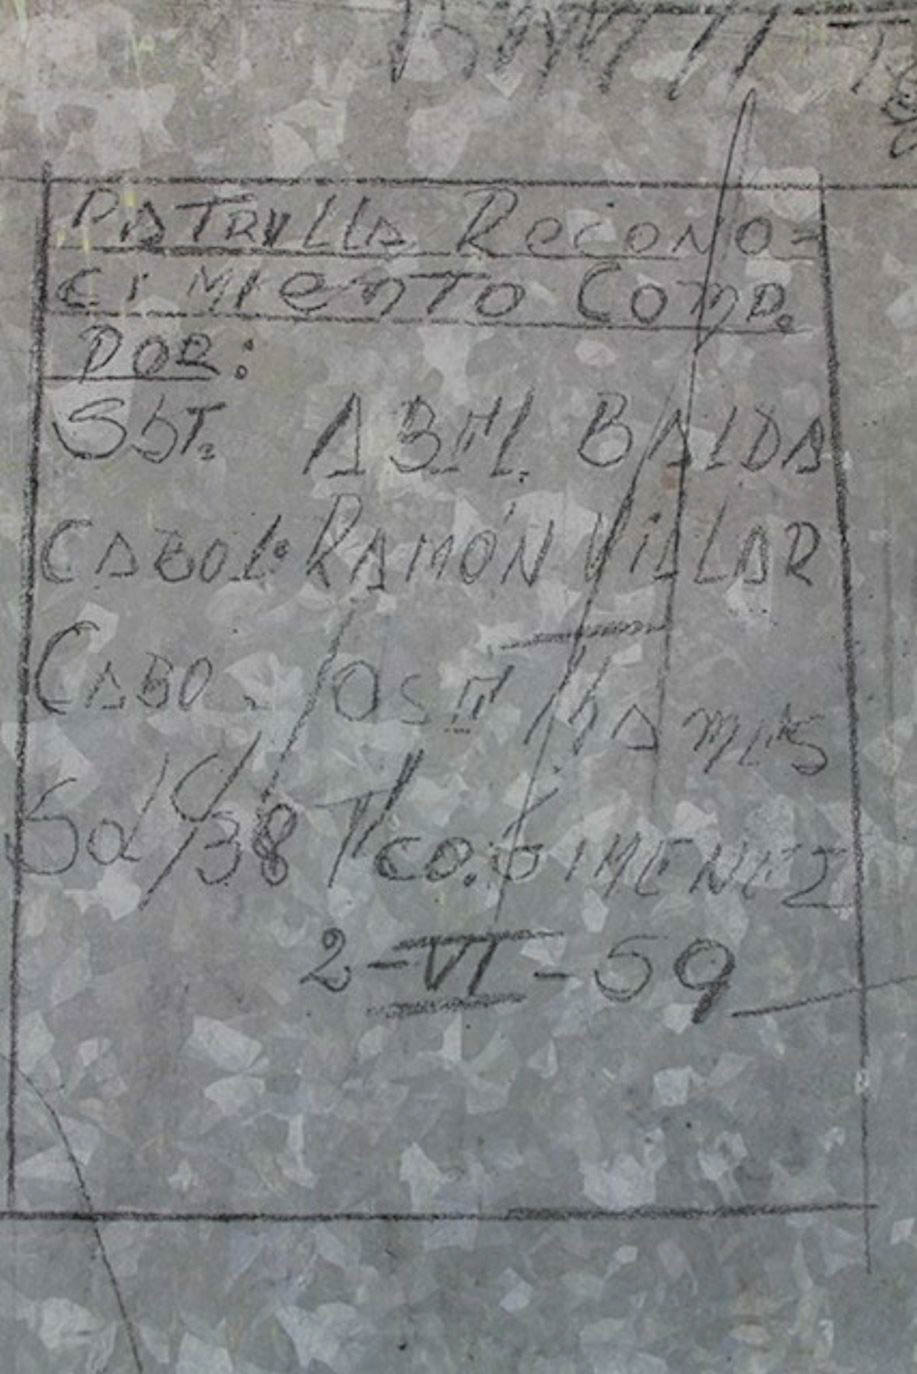 PATRULLA RECONO=
CIMIENTO COMP.
POR:
SbT. ABEL BALDA
CABO 1º RAMÓN VILLAR
CABO. JOSE
Sd/ C/38 Fco. JIMENEZ
2-VI-59